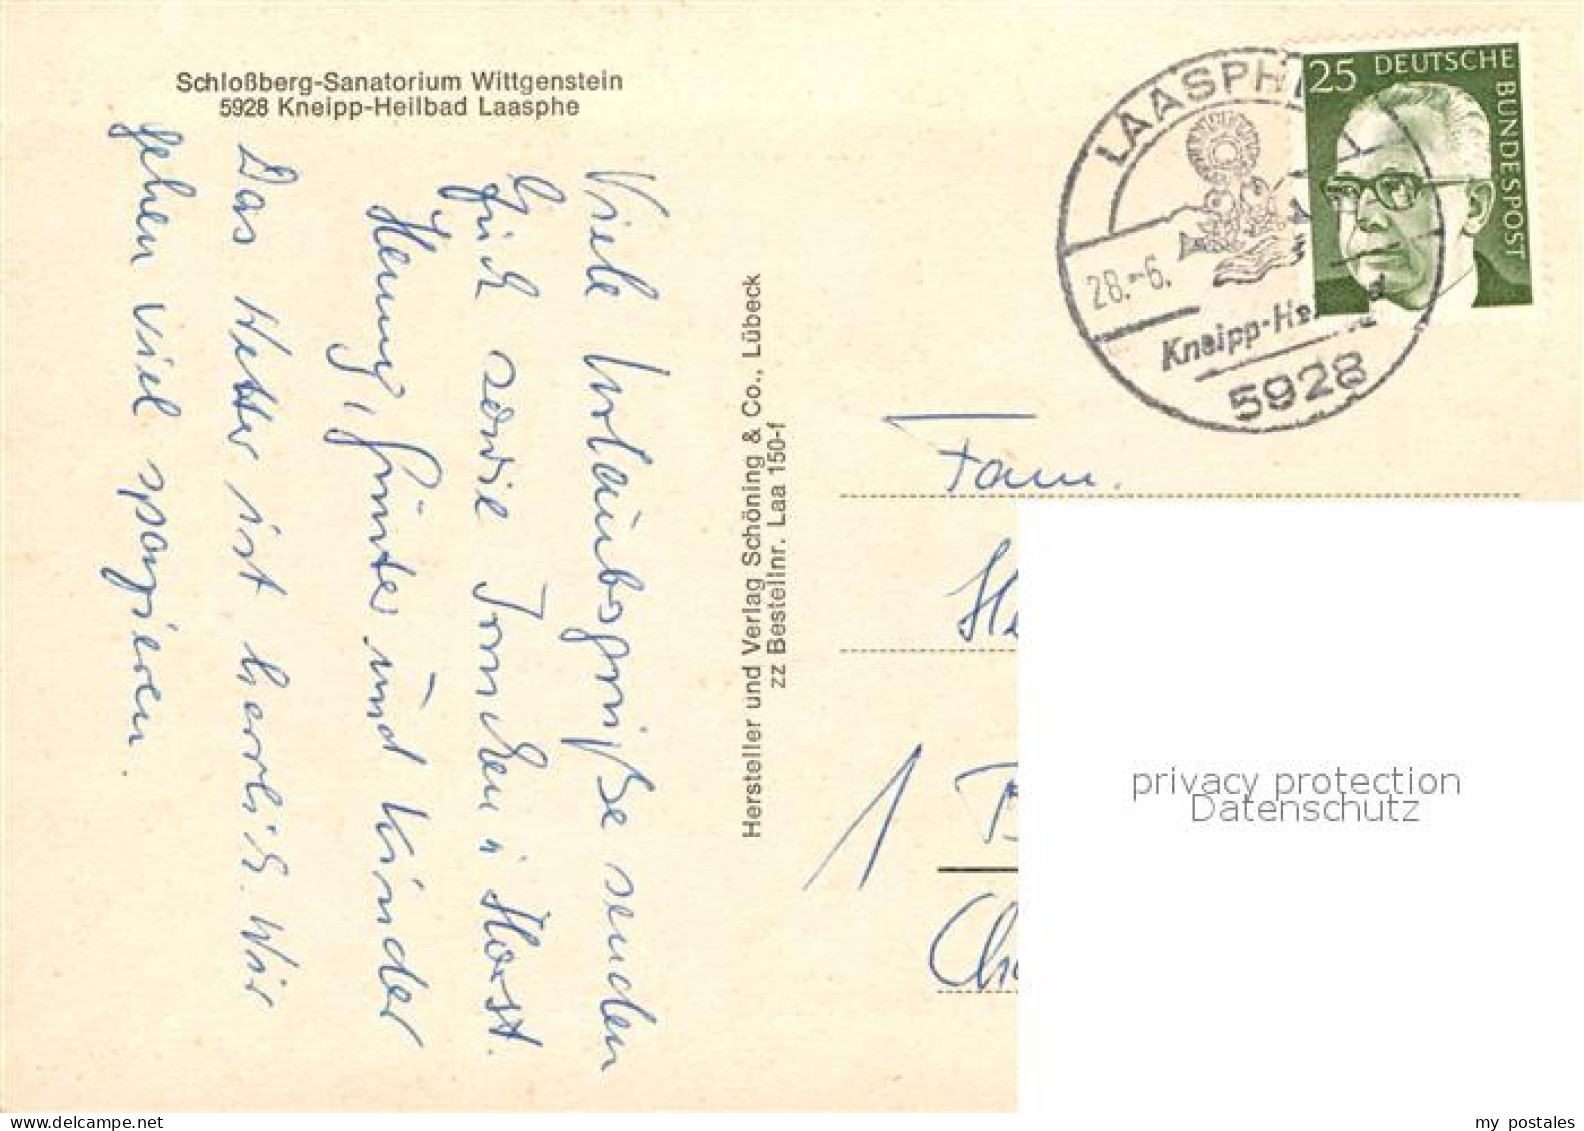 Schloßberg-Sanatorium Wittgenstein
5928 Kneipp-Heilbad Laasphe
Viele Urlaubsgrüße senden
Euch sowie
Horst.
Henny, Günter und Kinder
Das Wetter ist herrlich. Wir
gehen viel spazieren.
Hersteller und Verlag Schöning & Co., Lübeck
zz Bestellnr. Laa 150-f
LAASPH
28.-6.
Kneipp-He
5928
25 DEUTSCHE
BUNDESPOST
Fam.
1
privacy protection
Datenschutz
my postales
www.delcampe.net